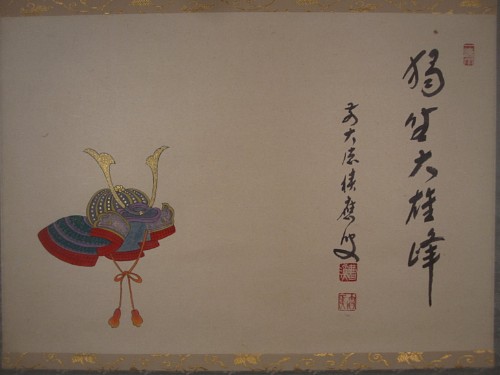 獨坐大雄峰
前大徳積應叟